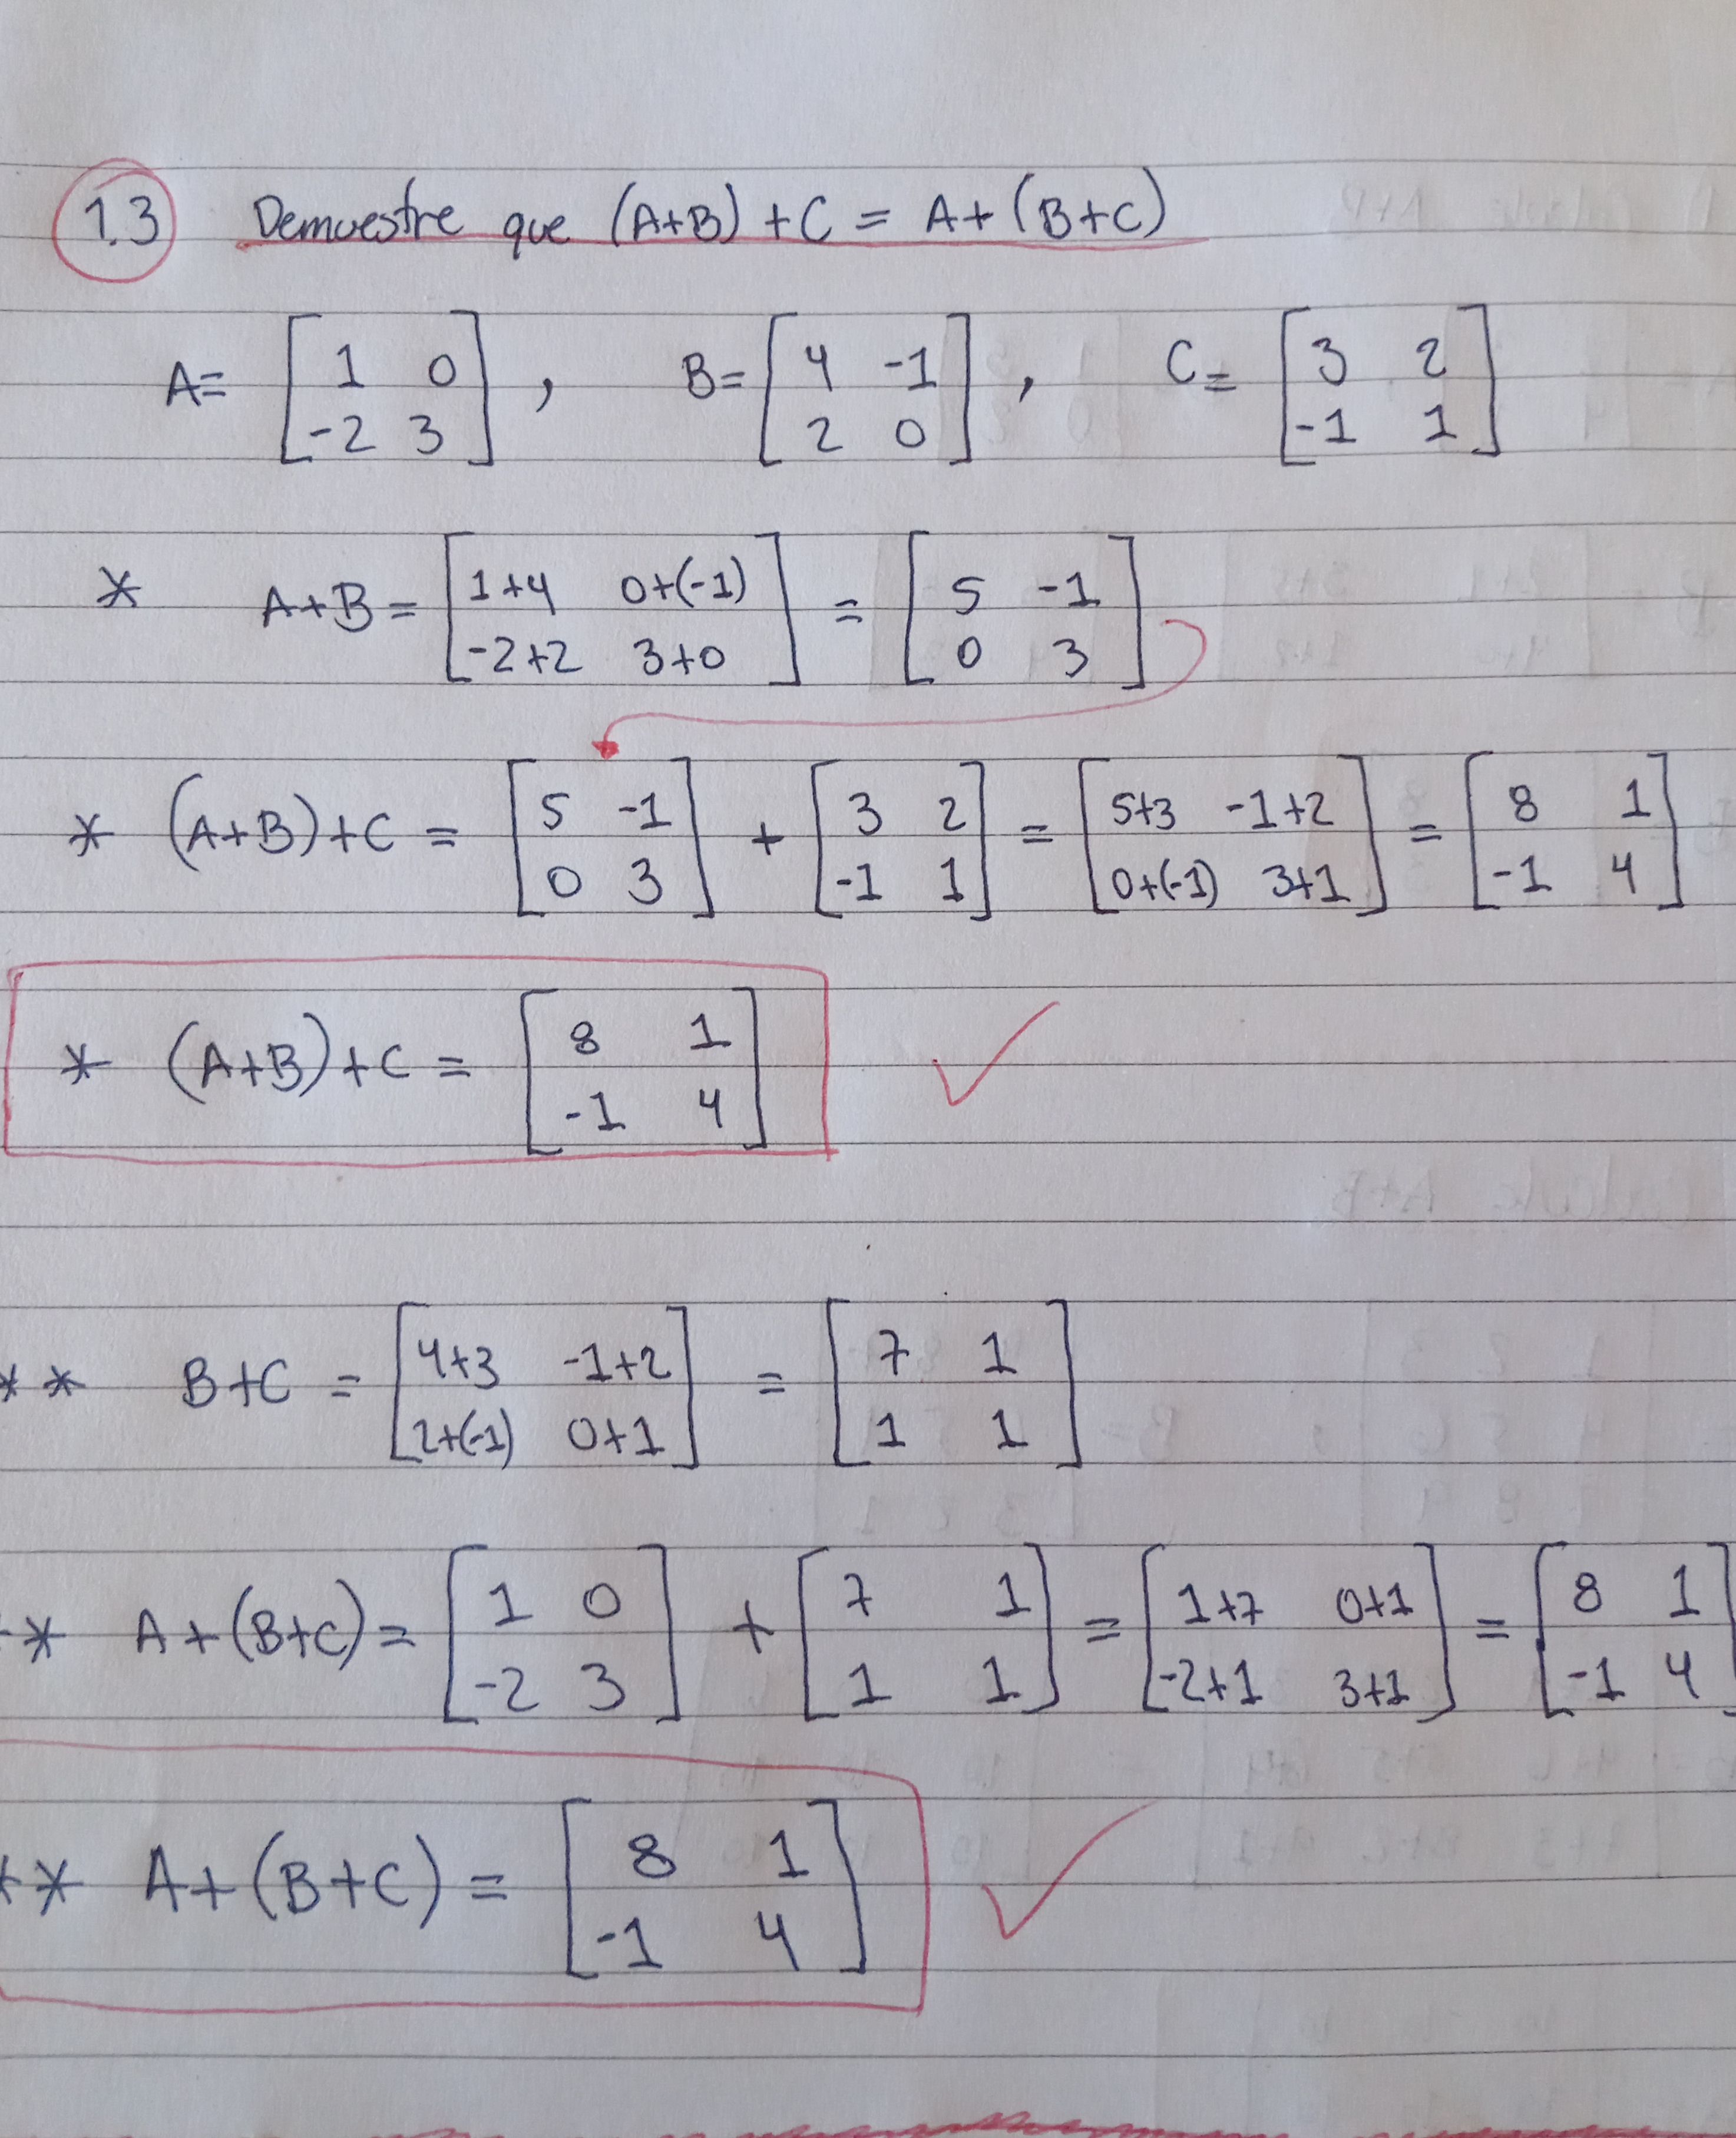 1.3 Demuestre que (A+B)+C = A+(B+C)
A= [1 0; -2 3], B= [4 -1; 2 0], C= [3 2; -1 1]
* A+B= [1+4 0+(-1); -2+2 3+0] = [5 -1; 0 3]
* (A+B)+C = [5 -1; 0 3] + [3 2; -1 1] = [5+3 -1+2; 0+(-1) 3+1] = [8 1; -1 4]
* (A+B)+C = [8 1; -1 4] ✓
** B+C = [4+3 -1+2; 2+(-1) 0+1] = [7 1; 1 1]
** A+(B+C)= [1 0; -2 3] + [7 1; 1 1] = [1+7 0+1; -2+1 3+1] = [8 1; -1 4]
** A+(B+C) = [8 1; -1 4] ✓